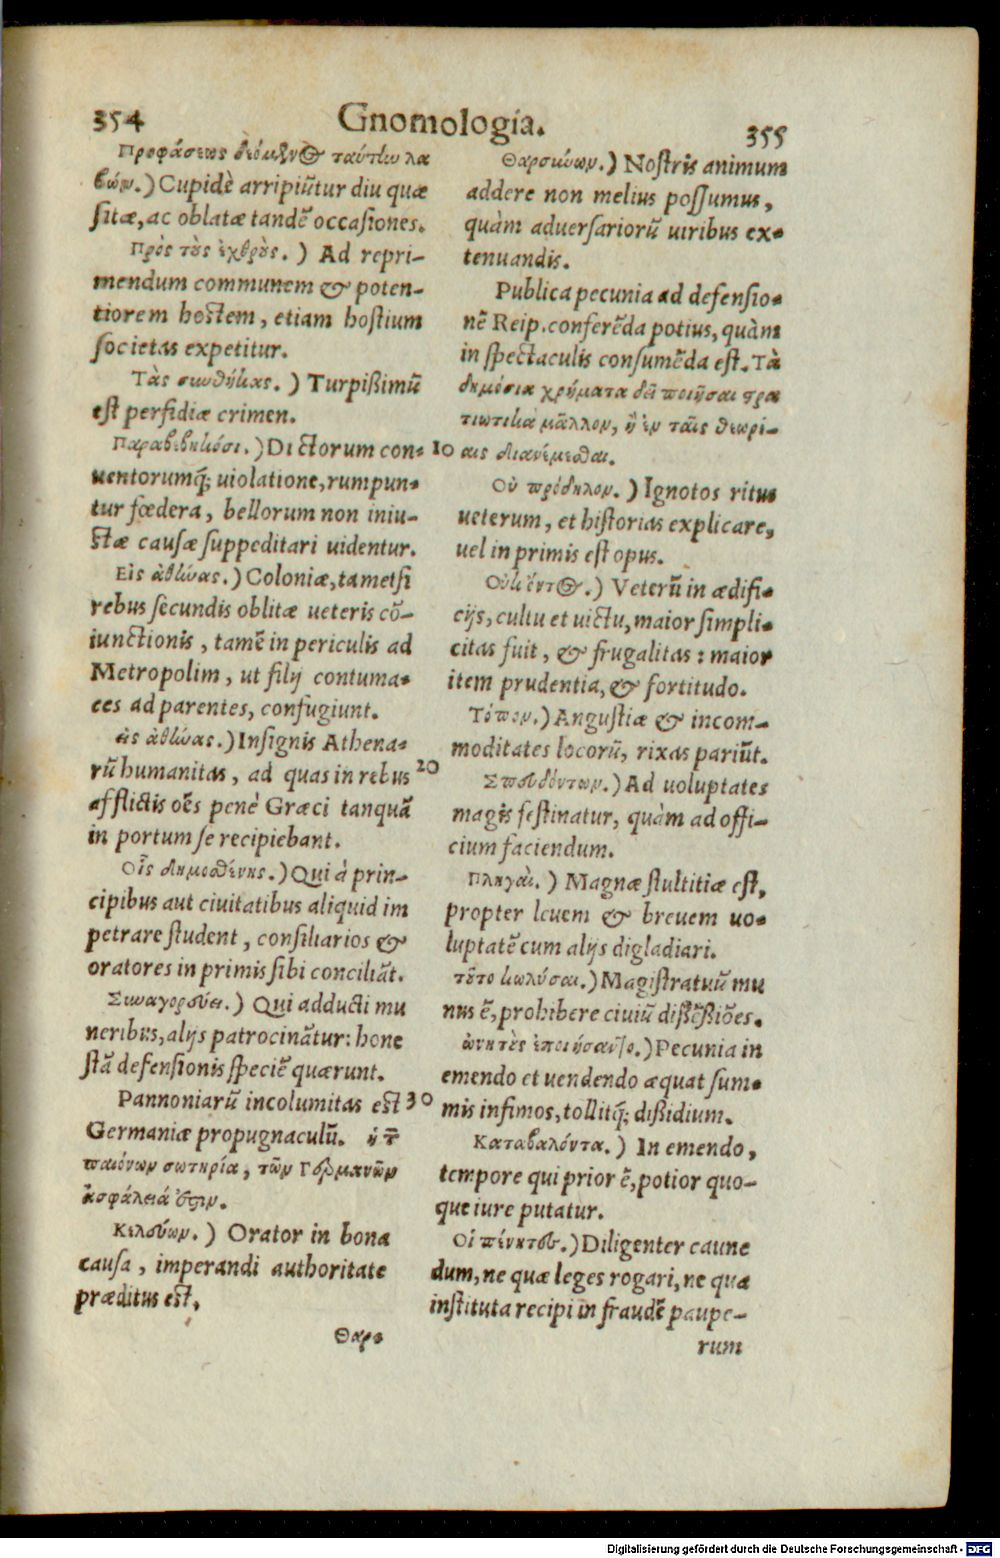 354 Gnomologia. 355
Προφάσεως δεόμενος ταύτην λα
βών.) Cupidè arripiūtur diu quæ
sitæ, ac oblatæ tandē occasiones.
Πρὸς τοὺς ἐχθροὺς.) Ad repri-
mendum communem & poten-
tiorem hostem, etiam hostium
societas expetitur.
Τὰς συνθήκας.) Turpißimū
est perfidiæ crimen.
Παραβεβηκόσι.) Dictorum con-
uentorumq́; uiolatione, rumpun-
tur fœdera, bellorum non iniu-
stæ causæ suppeditari uidentur.
Εἰς ἀθήνας.) Coloniæ, tametsi
rebus secundis oblitæ ueteris cō-
iunctionis, tamē in periculis ad
Metropolim, ut filij contuma-
ces ad parentes, confugiunt.
εἰς ἀθήνας.) Insignis Athena-
rū humanitas, ad quas in rebus
afflictis oēs penè Græci tanquā
in portum se recipiebant.
Οἷς δημοσθένης.) Qui à prin-
cipibus aut ciuitatibus aliquid im
petrare student, consiliarios &
oratores in primis sibi conciliāt.
Συναγορεύει.) Qui adducti mu
neribus, alijs patrocinātur: hone
stā defensionis speciē quærunt.
Pannoniarū incolumitas est
Germaniæ propugnaculū. ἡ τ
παιόνων σωτηρία, τῶν Γερμανῶν
ἀσφάλειά ἐστιν.
Κελεύων.) Orator in bona
causa, imperandi authoritate
præditus est.
Θαρ-
Θαρσύνων.) Nostris animum
addere non melius possumus,
quàm aduersariorū uiribus ex-
tenuandis.
Publica pecunia ad defensio-
nē Reip. conferēda potius, quàm
in spectaculis consumēda est. Τὰ
δημόσια χρήματα δεῖ ποιῆσαι στρα
τιωτικὰ μᾶλλον, ἢ ἐν ταῖς θεωρί-
10 αις διανέμεσθαι.
Οὐ πρόδηλον.) Ignotos ritus
ueterum, et historias explicare,
uel in primis est opus.
Οὐκ ἐντὸς.) Veterū in ædifi-
cijs, cultu et uictu, maior simpli-
citas fuit, & frugalitas: maior
item prudentia, & fortitudo.
Τόπον.) Angustiæ & incom-
moditates locorū, rixas pariūt.
20
Σπευδόντων.) Ad uoluptates
magis festinatur, quàm ad offi-
cium faciendum.
Πληγαὶ.) Magnæ stultitiæ est,
propter leuem & breuem uo-
luptatē cum alijs digladiari.
τοῦτο κωλύσαι.) Magistratuū mu
nus ē, prohibere ciuiū dißēßiōes.
ὠνητὰς ἐποιήσαντο.) Pecunia in
emendo et uendendo æquat sum-
30 mis infimos, tollitq́; dißidium.
Καταβαλόντα.) In emendo,
tempore qui prior ē, potior quo-
que iure putatur.
Οἱ πένητες.) Diligenter caune
dum, ne quæ leges rogari, ne qua
instituta recipi in fraudē paupe-
rum
Digitalisierung gefördert durch die Deutsche Forschungsgemeinschaft - DFG